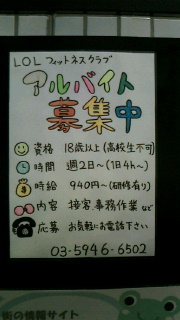 LOL フィットネスクラブ
アルバイト
募集中
資格 18歳以上(高校生不可)
時間 週2日～(1日4h～)
時給 940円～(研修有り)
内容 接客、事務作業 など
応募 お気軽にお電話下さい
03-5946-6502
街の情報サイト